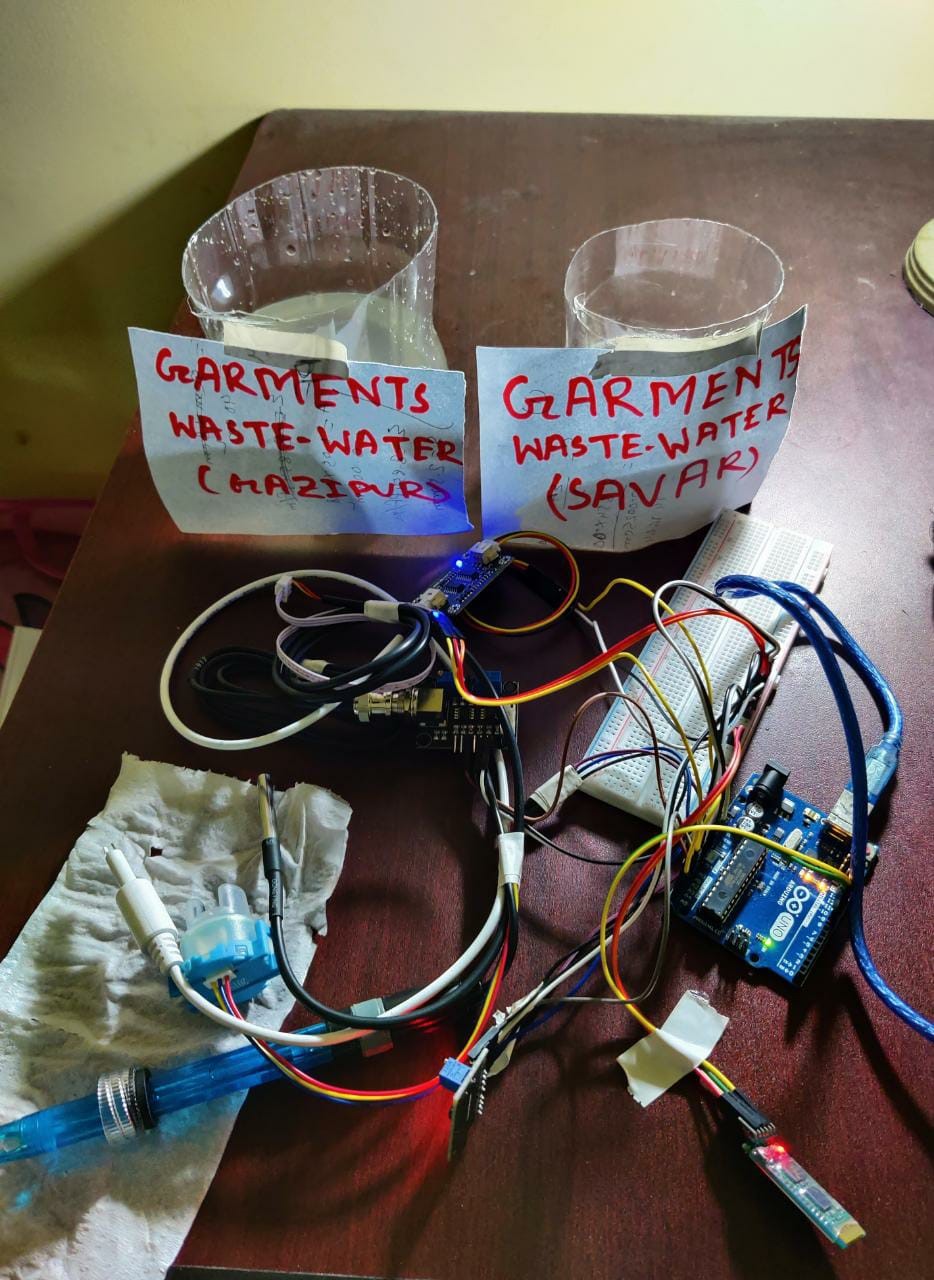 GARMENTS
WASTE-WATER
(GAZIPUR)
GARMENTS
WASTE-WATER
(SAVAR)
UNO
ARDUINO